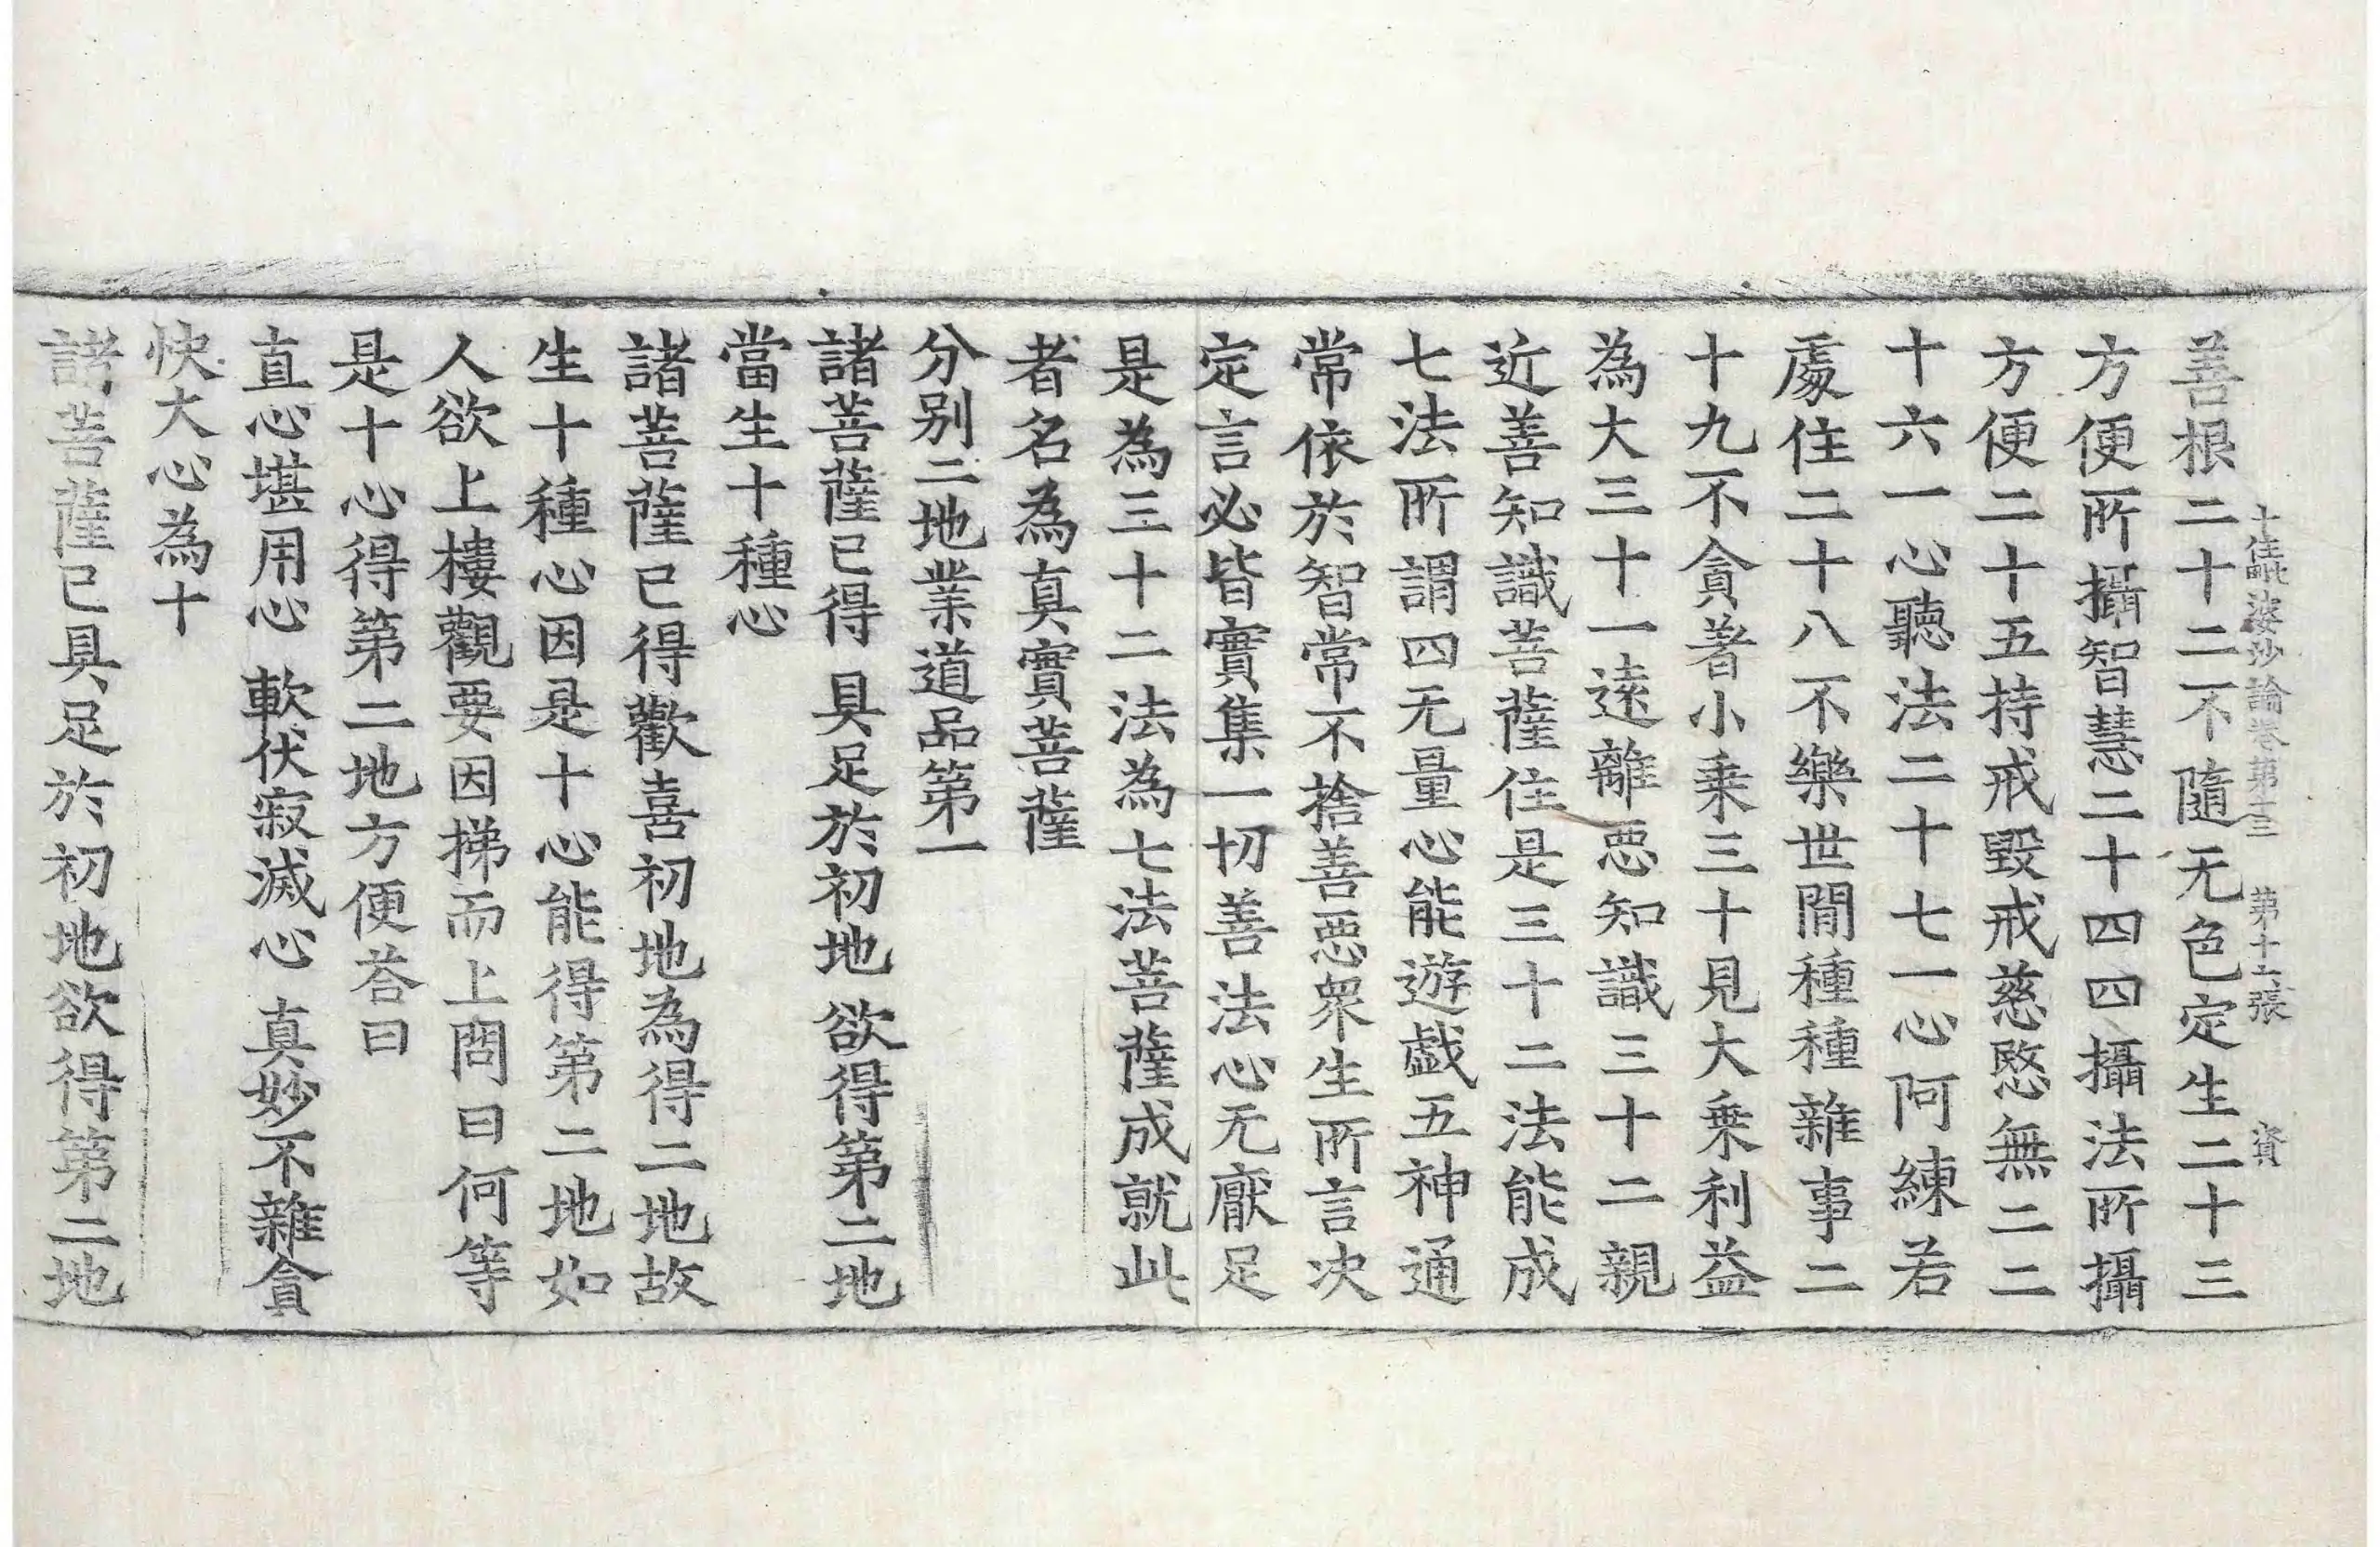 十住毗婆沙論卷第十三　第十二張　資
善根二十二不隨无色定生二十三
方便所攝智慧二十四四攝法所攝
方便二十五持戒毀戒慈愍無二二
十六一心聽法二十七一心阿練若
處住二十八不樂世間種種雜事二
十九不貪著小乗三十見大乗利益
為大三十一遠離惡知識三十二親
近善知識菩薩住是三十二法能成
七法所謂四无量心能遊戯五神通
常依於智常不捨善惡衆生所言决
定言必皆實集一切善法心无厭足
是為三十二法為七法菩薩成就此
者名為真實菩薩
分别二地業道品第一
諸菩薩已得　具足於初地　欲得第二地
當生十種心
諸菩薩已得歡喜初地為得二地故
生十種心因是十心能得第二地如
人欲上樓觀要因梯而上問曰何等
是十心得第二地方便荅曰
直心堪用心　軟伏寂滅心　真妙不雜貪
快大心為十
諸菩薩已具足於初地欲得第二地